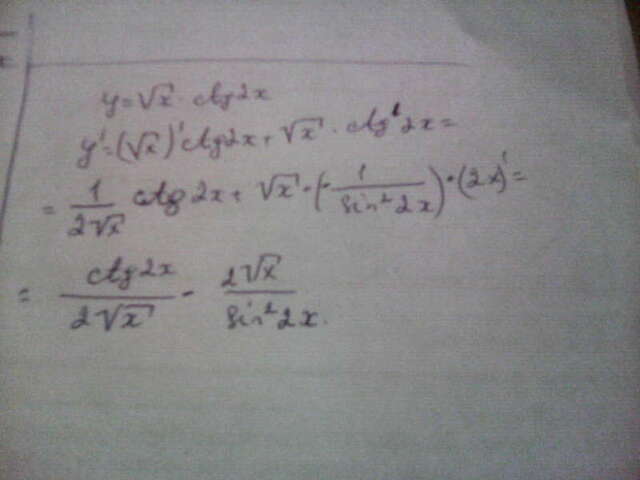 y=√x · ctg2x
y'=(√x)' ctg2x + √x · ctg'2x =
= 1/(2√x) ctg 2x + √x · (-1/(sin²2x)) · (2x)' =
= (ctg2x)/(2√x) - (2√x)/(sin²2x).